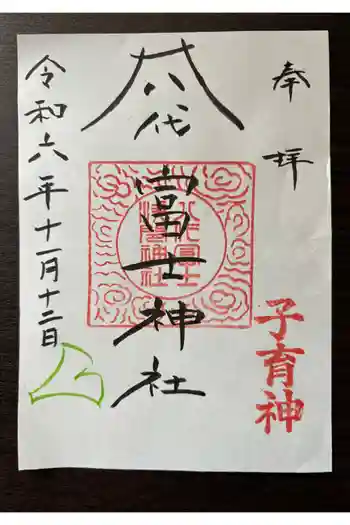 奉拝
子育神
八代
富士神社
令和六年十一月十二日